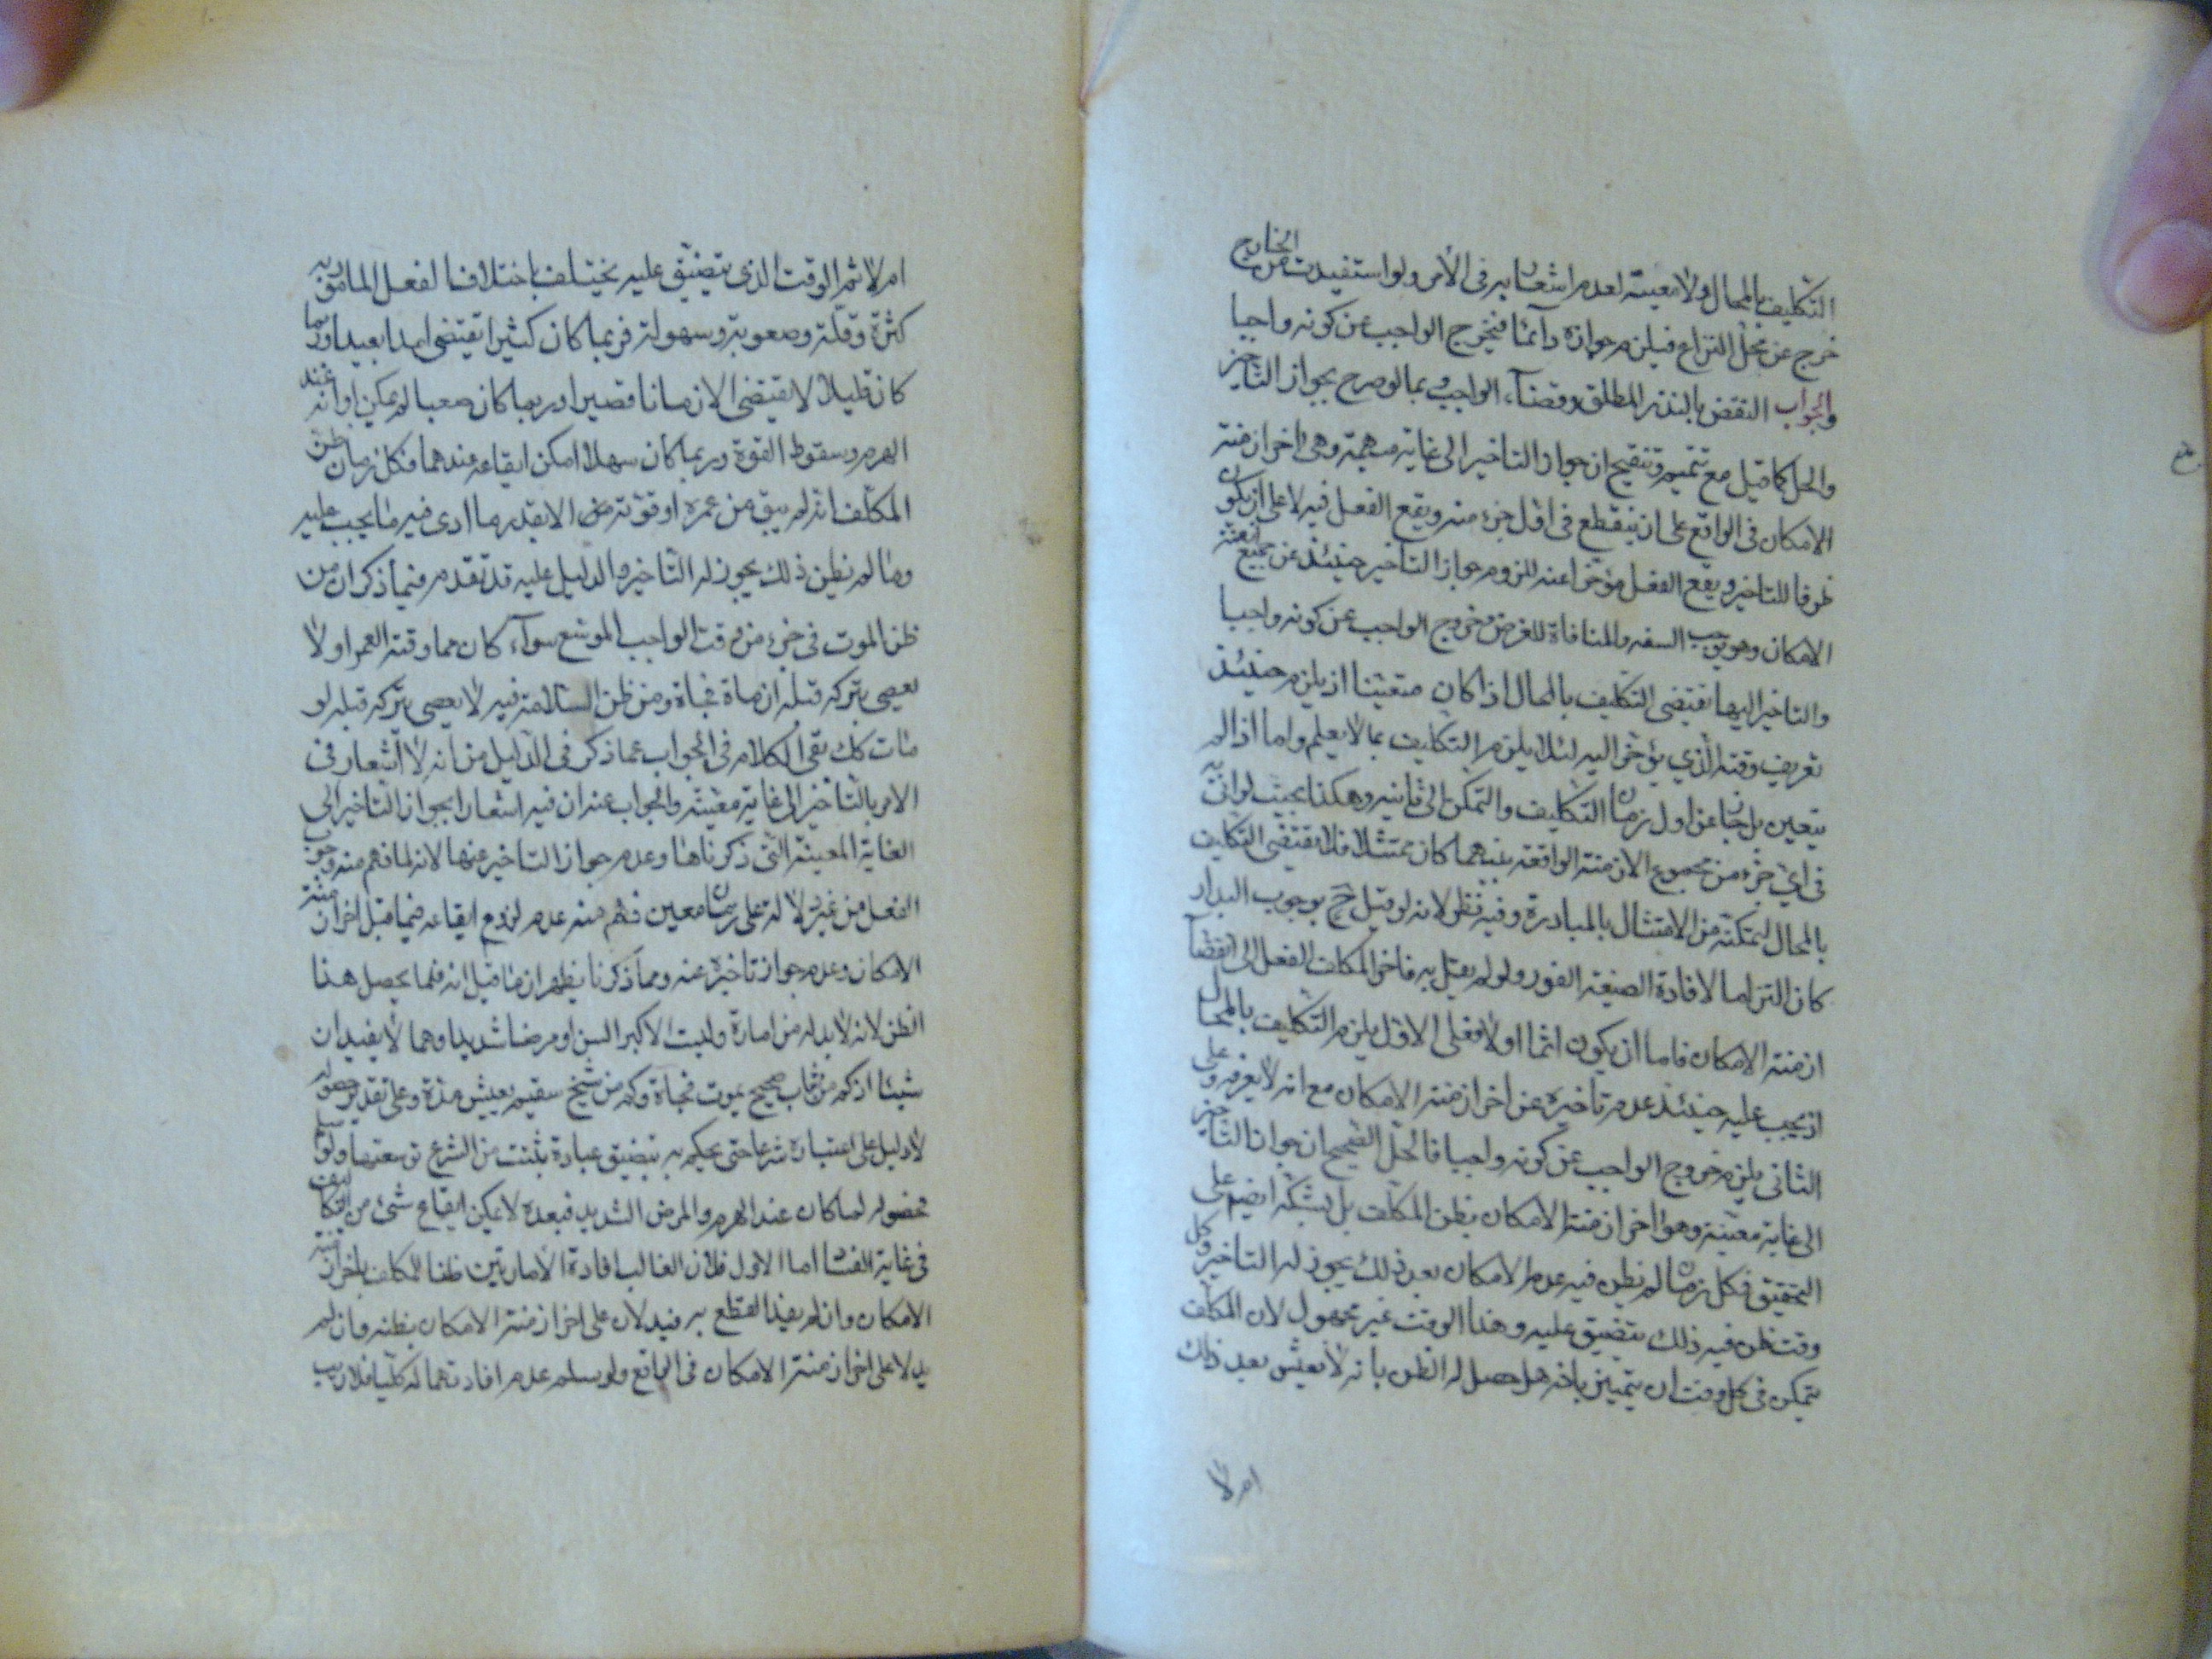 التكليف بالمحال ولا معينة لعدم اشعار به فى الأمر ولو استفيدت من الخارج
خرج عن محل النزاع فيلزم جوازه دائما فيخرج الواجب عن كونه واجبا
والجواب النقض بالنذر المطلق وقضاء الواجب وبما لو صرح بجواز التأخير
والحل كما قيل مع تتميم وتنقيح ان جواز التاخير الى غاية مبهمة وهى اخر ازمنة
الامكان فى الواقع على ان ينقطع فى اقل جزء منه ويقع الفعل فيه لا على ان يكون
ظرفا للتاخير ويقع الفعل مؤخرا عنه للزوم جواز التاخير حينئذ عن جميع ازمنة
الامكان وهو يوجب السفه والمنافاة للغرض وخروج الواجب عن كونه واجبا
والتاخير اليها يقتضى التكليف بالمحال اذا كان متعينا اذ يلزم حينئذ
تعريف وقته الذي يؤخر اليه لئلا يلزم التكليف بما لا يعلم واما اذا لم
يتعين بل جاز عن اول زمان التكليف والتمكن الى ثانيه وهكذا بحيث لو اتى به
فى اي جزء من مجموع الازمنة الواقعة بينهما كان ممتثلا فلا يقتضى التكليف
بالمحال لتمكنه من الامتثال بالمبادرة وفيه نظر لانه لو قيل ح بوجوب البدار
كان التزاما لافادة الصيغة الفور ولو لم يقل به فاخر المكلف الفعل الى انقضاء
ازمنة الامكان فاما ان يكون اثما او لا فعلى الاول يلزم التكليف بالمحال
اذ يجب عليه حينئذ عدم تاخيره عن اخر ازمنة الامكان مع انه لا يعرفه وعلى
الثانى يلزم خروج الواجب عن كونه واجبا فالحل الصحيح ان جواز التاخير
الى غاية معينة وهو اخر ازمنة الامكان بظن المكلف بل بشكه ايضم على
التحقيق فكل زمان لم يظن فيه عدم الامكان بعد ذلك يجوز له التاخير وكل
وقت ظن فيه ذلك يتضيق عليه وهذا الوقت غير مجهول لان المكلف
يتمكن فى كل وقت ان يتميز بانه هل حصل له الظن بانه لا يعيش بعد ذلك
ام لا
ام لا ثم الوقت الذى يتضيق عليه يختلف باختلاف الفعل المامور به
كثرة وقلة وصعوبة وسهولة فربما كان كثيرا يقتضى امدا بعيدا وربما
كان قليلا لا يقتضى الا زمانا قصيرا وربما كان صعبا لم يمكن اوانه عند
الهرم وسقوط القوة وربما كان سهلا امكن ايقاعه عندهما فكل زمان ظن
المكلف انه لم يبق من عمره او قوته الا بقدر ما ادى فيه ما يجب عليه
وما لم نظن ذلك يجوز له التاخير والدليل عليه قد تقدم فيما ذكر ان من
ظن الموت فى جزء من وقت الواجب الموسع سواء كان مما وقته العمر او لا
يعصى بتركه قبله ان مات فجاة ومن ظن السلامة فيه لا يعصى بتركه قبله لو
مات كك بقى الكلام فى الجواب عما ذكر فى الدليل من انه لا اشعار فى
الامر بالتاخير الى غاية معينة والجواب عنه ان فيه اشعارا بجواز التاخير الى
الغاية المعينة التى ذكرناها وعدم جواز التاخير عنها لانه لما فهم منه وجوب
الفعل من غير دلالة على زمان معين فهم منه عدم لزوم ايقاعه فيما قبل اخر ازمنة
الامكان وعدم جواز تاخيره عنه ومما ذكرنا يظهر ان ما قيل انه قلما يحصل هذا
الظن لانه لا بد له من امارة وليست الا كبر السن او مرضا شديدا وهما لا يفيدان
شيئا اذ كم من شاب صحيح يموت فجاة وكم من شيخ سقيم يعيش مدة وعلى تقدير حصوله
لا دليل على اعتباره شرعا حتى يحكم به بتضيق عبادة يثبت من الشرع توسعتها
حصوله لما كان عند الهرم والمرض الشديد فبعده لا يمكن ايقاع شئ من التكاليف
فى غاية الفساد اما الاول فلان الغالب افادة الامارتين ظنا للمكلف باخر ازمنة
الامكان وان لم يفيدا القطع به فيدلان على اخر ازمنة الامكان بظنه وان لم
يدلا على اخر ازمنة الامكان فى الواقع ولو سلم عدم افادتهما له كليا فلا ريب